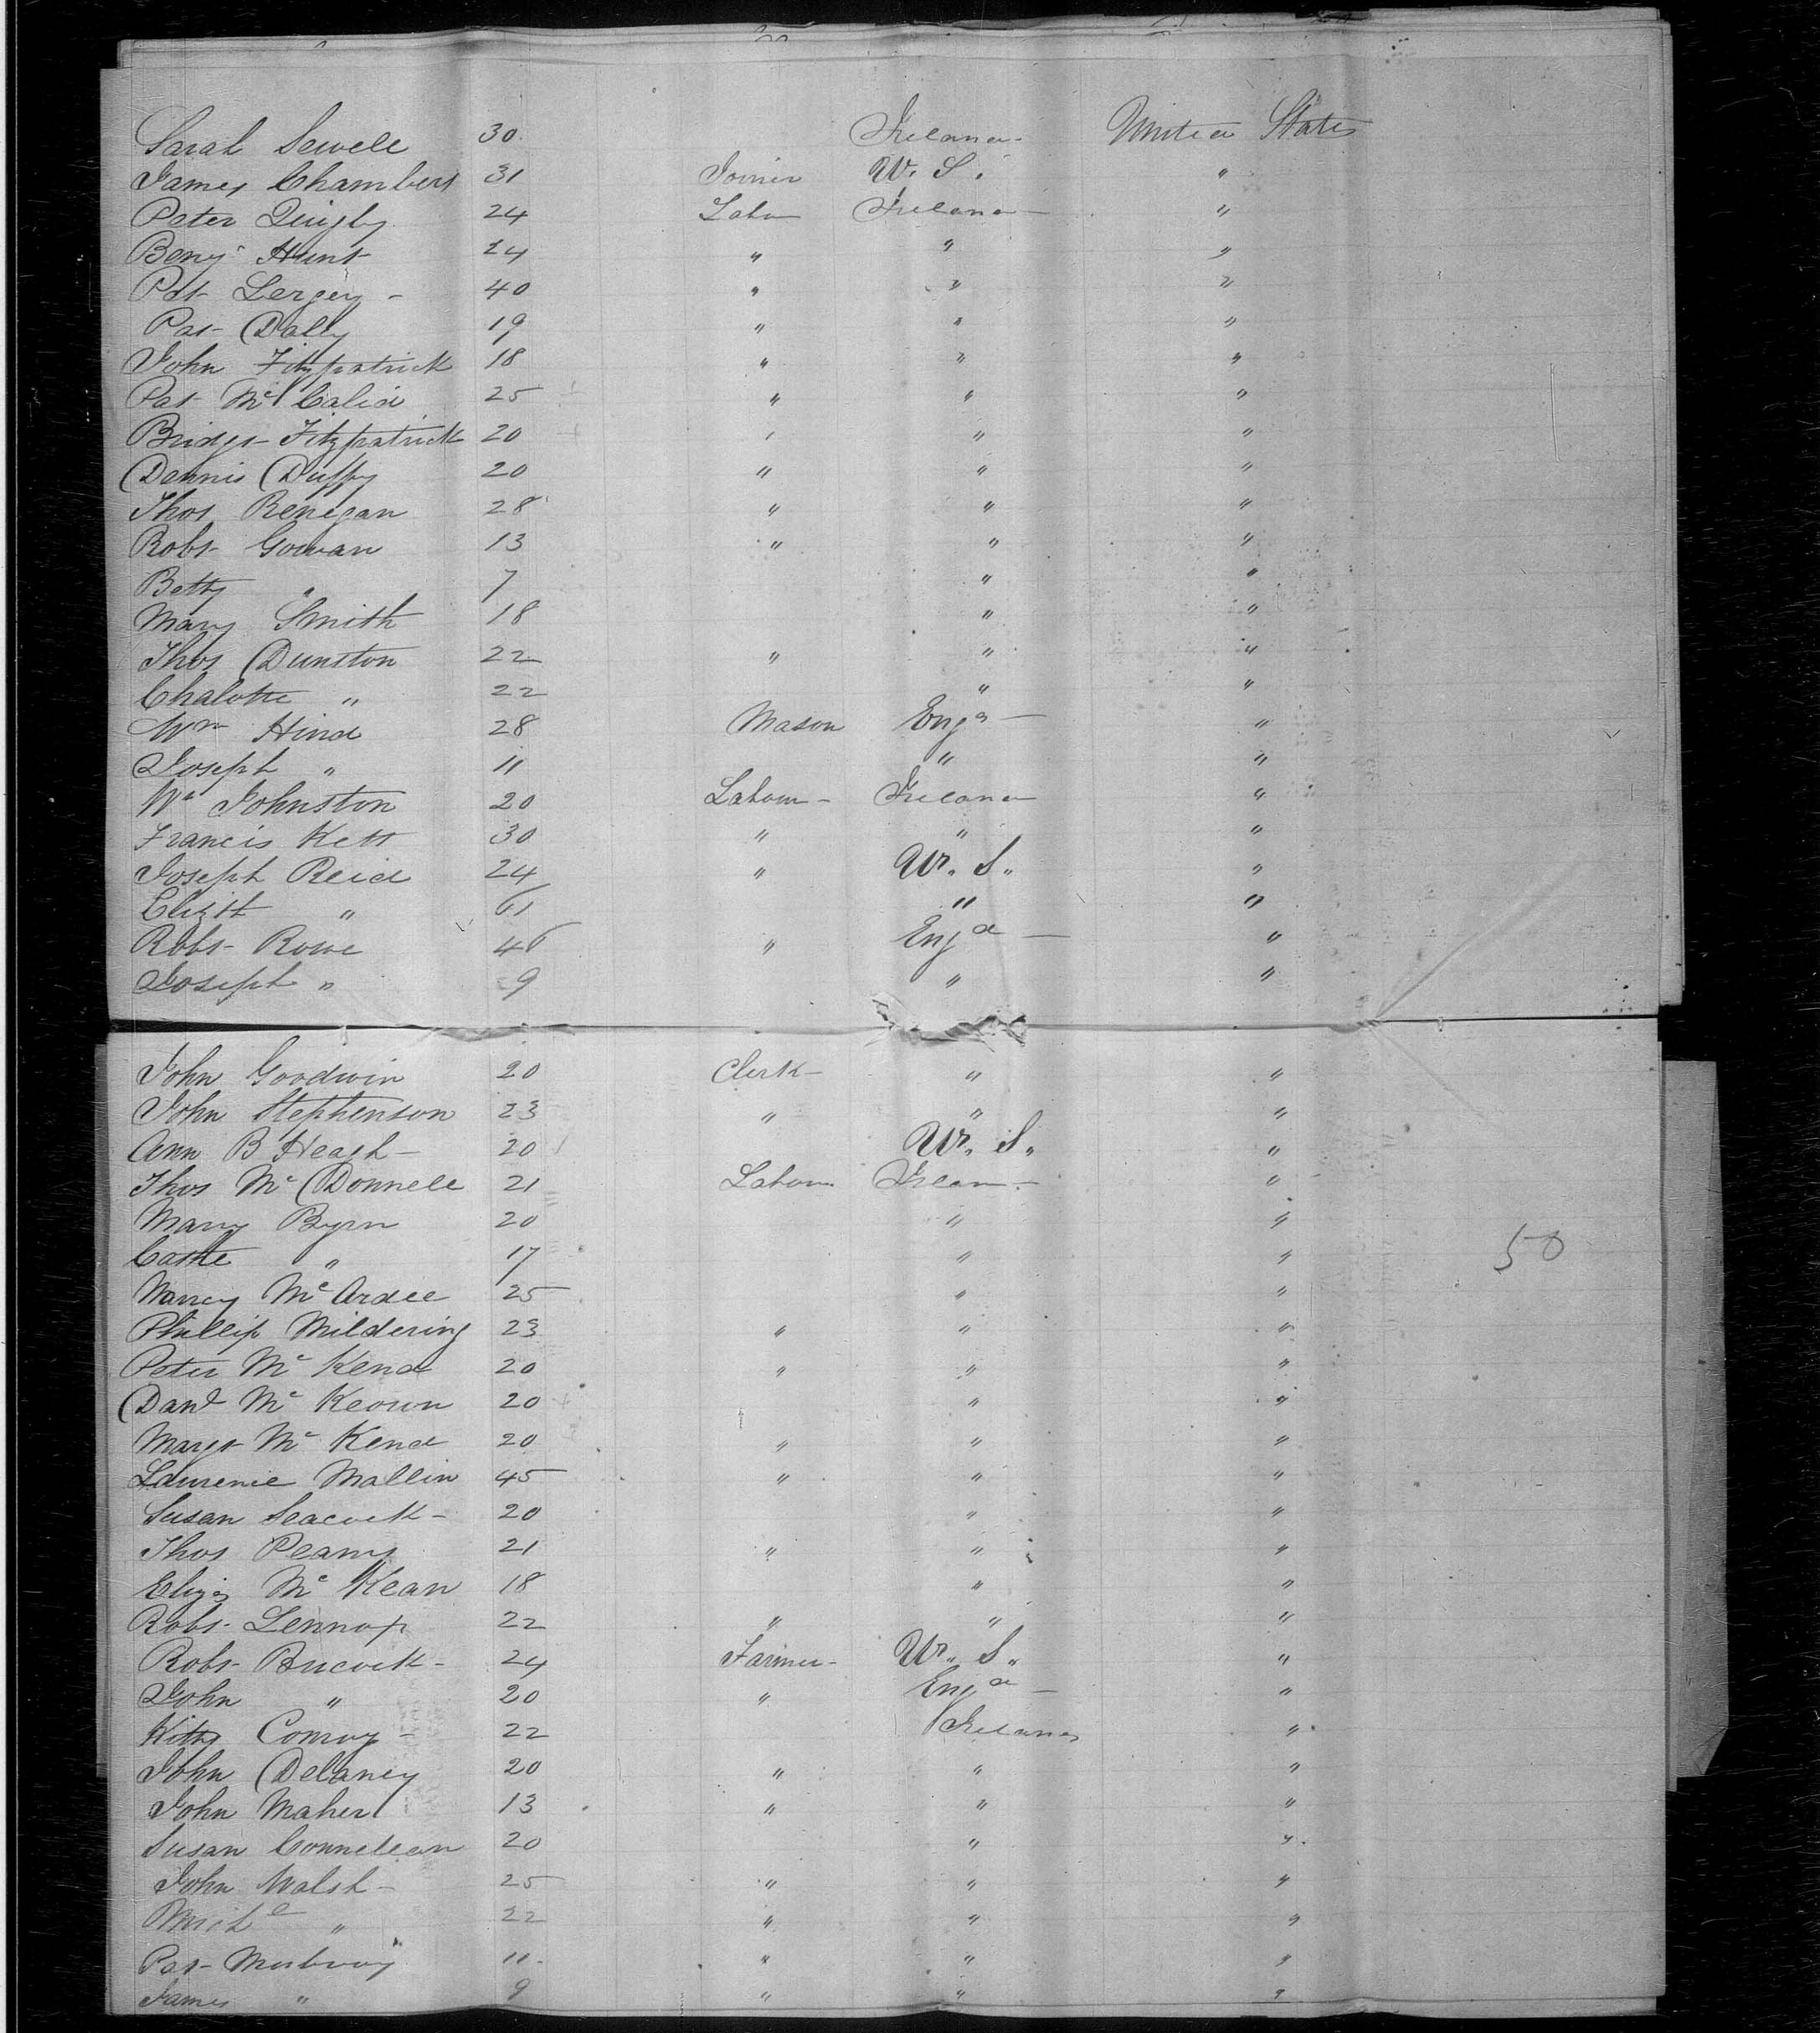 Sarah Sewell 30 Ireland United States
James Chambers 31 Joiner U. S. "
Peter Quigly 24 Labor Ireland "
Benj Hunt 24 " " "
Pat 40 " " "
Pat Dally 19 " " "
John Fitzpatrick 18 " " "
Pat Mc 25 " " "
Bridgt Fitzpatrick 20 " " "
Dennis Duffy 20 " " "
Thos Renegan 28 " " "
Robt Gowan 13 " " "
Betty " 7 " "
Mary Smith 18 " "
Thos Dunston 22 " " "
Chalotte " 22 " "
Wm Hind 28 Mason Engd "
Joseph " 11 " "
Wm Johnston 20 Labour Ireland "
Francis Kett 30 " " "
Joseph Reid 24 " U. S. "
Elizth " " "
Robt Rowe " Engd "
Joseph " 9 " "
John Goodwin 20 Clerk " "
John Stephenson 23 " " "
Ann B 20 U. S. "
Thos Mc Donnell 21 Labour Irelan "
Mary Byrn 20 " "
" 17 " "
Nancy Mc Ardee 25 " "
Phillip Mildering 23 " " "
Peter Mc Kend 20 " " "
Danl Mc Keown 20 " "
Margt Mc Kend 20 " " "
Laurence Mallin 45 " " "
Susan 20 " "
Thos 21 " " "
Eliza Mc Kean 18 " "
Robt Lennox 22 " " "
Robt 24 Farmer U. S. "
John " 20 " Engd "
Kitty Conroy 22 Ireland "
John Delaney 20 " " "
John Maher 13 " " "
Susan Connellan 20 " "
John Walsh 25 " " "
Michl " 22 " " "
Pat 11 " " "
James " 9 " " "
50